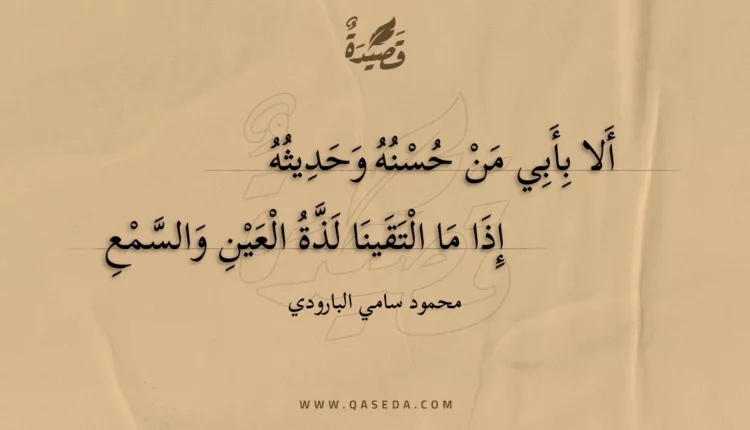 قَصِيْدَةٌ
أَلا بِأَبِي مَنْ حُسْنُهُ وَحَدِيثُهُ
إِذَا مَا الْتَقَينَا لَذَّةُ الْعَيْنِ وَالسَّمْعِ
محمود سامي البارودي
WWW.QASEDA.COM